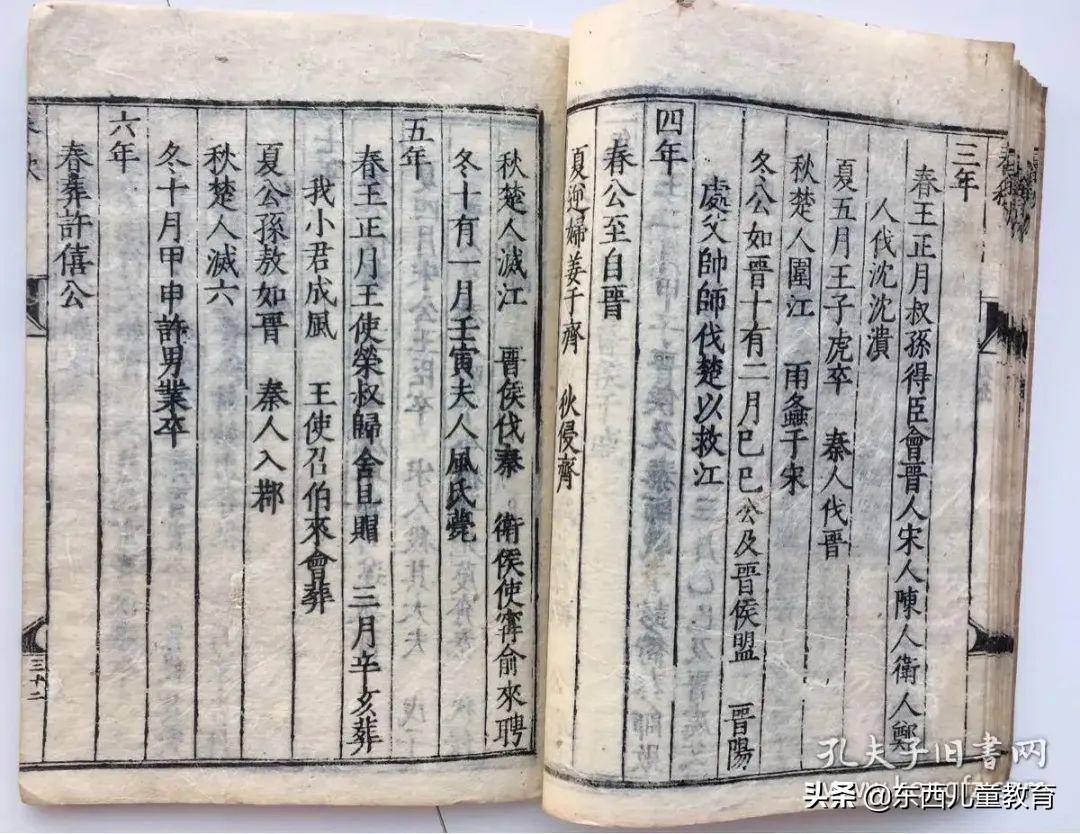 三年
春王正月叔孫得臣會晉人宋人陳人衛人鄭
人伐沈沈潰
夏五月王子虎卒 秦人伐晉
秋楚人圍江 雨螽于宋
冬公如晉十有二月己巳公及晉侯盟 晉陽
處父帥師伐楚以救江
四年
春公至自晉
夏逆婦姜于齊 狄侵齊
秋楚人滅江 晉侯伐秦 衛侯使甯俞來聘
冬十有一月壬寅夫人風氏薨
五年
春王正月王使榮叔歸含且賵 三月辛亥葬
我小君成風 王使召伯來會葬
夏公孫敖如晉 秦人入鄀
秋楚人滅六
冬十月甲申許男業卒
六年
春葬許僖公
三十二
孔夫子旧书网
头条 @东西儿童教育